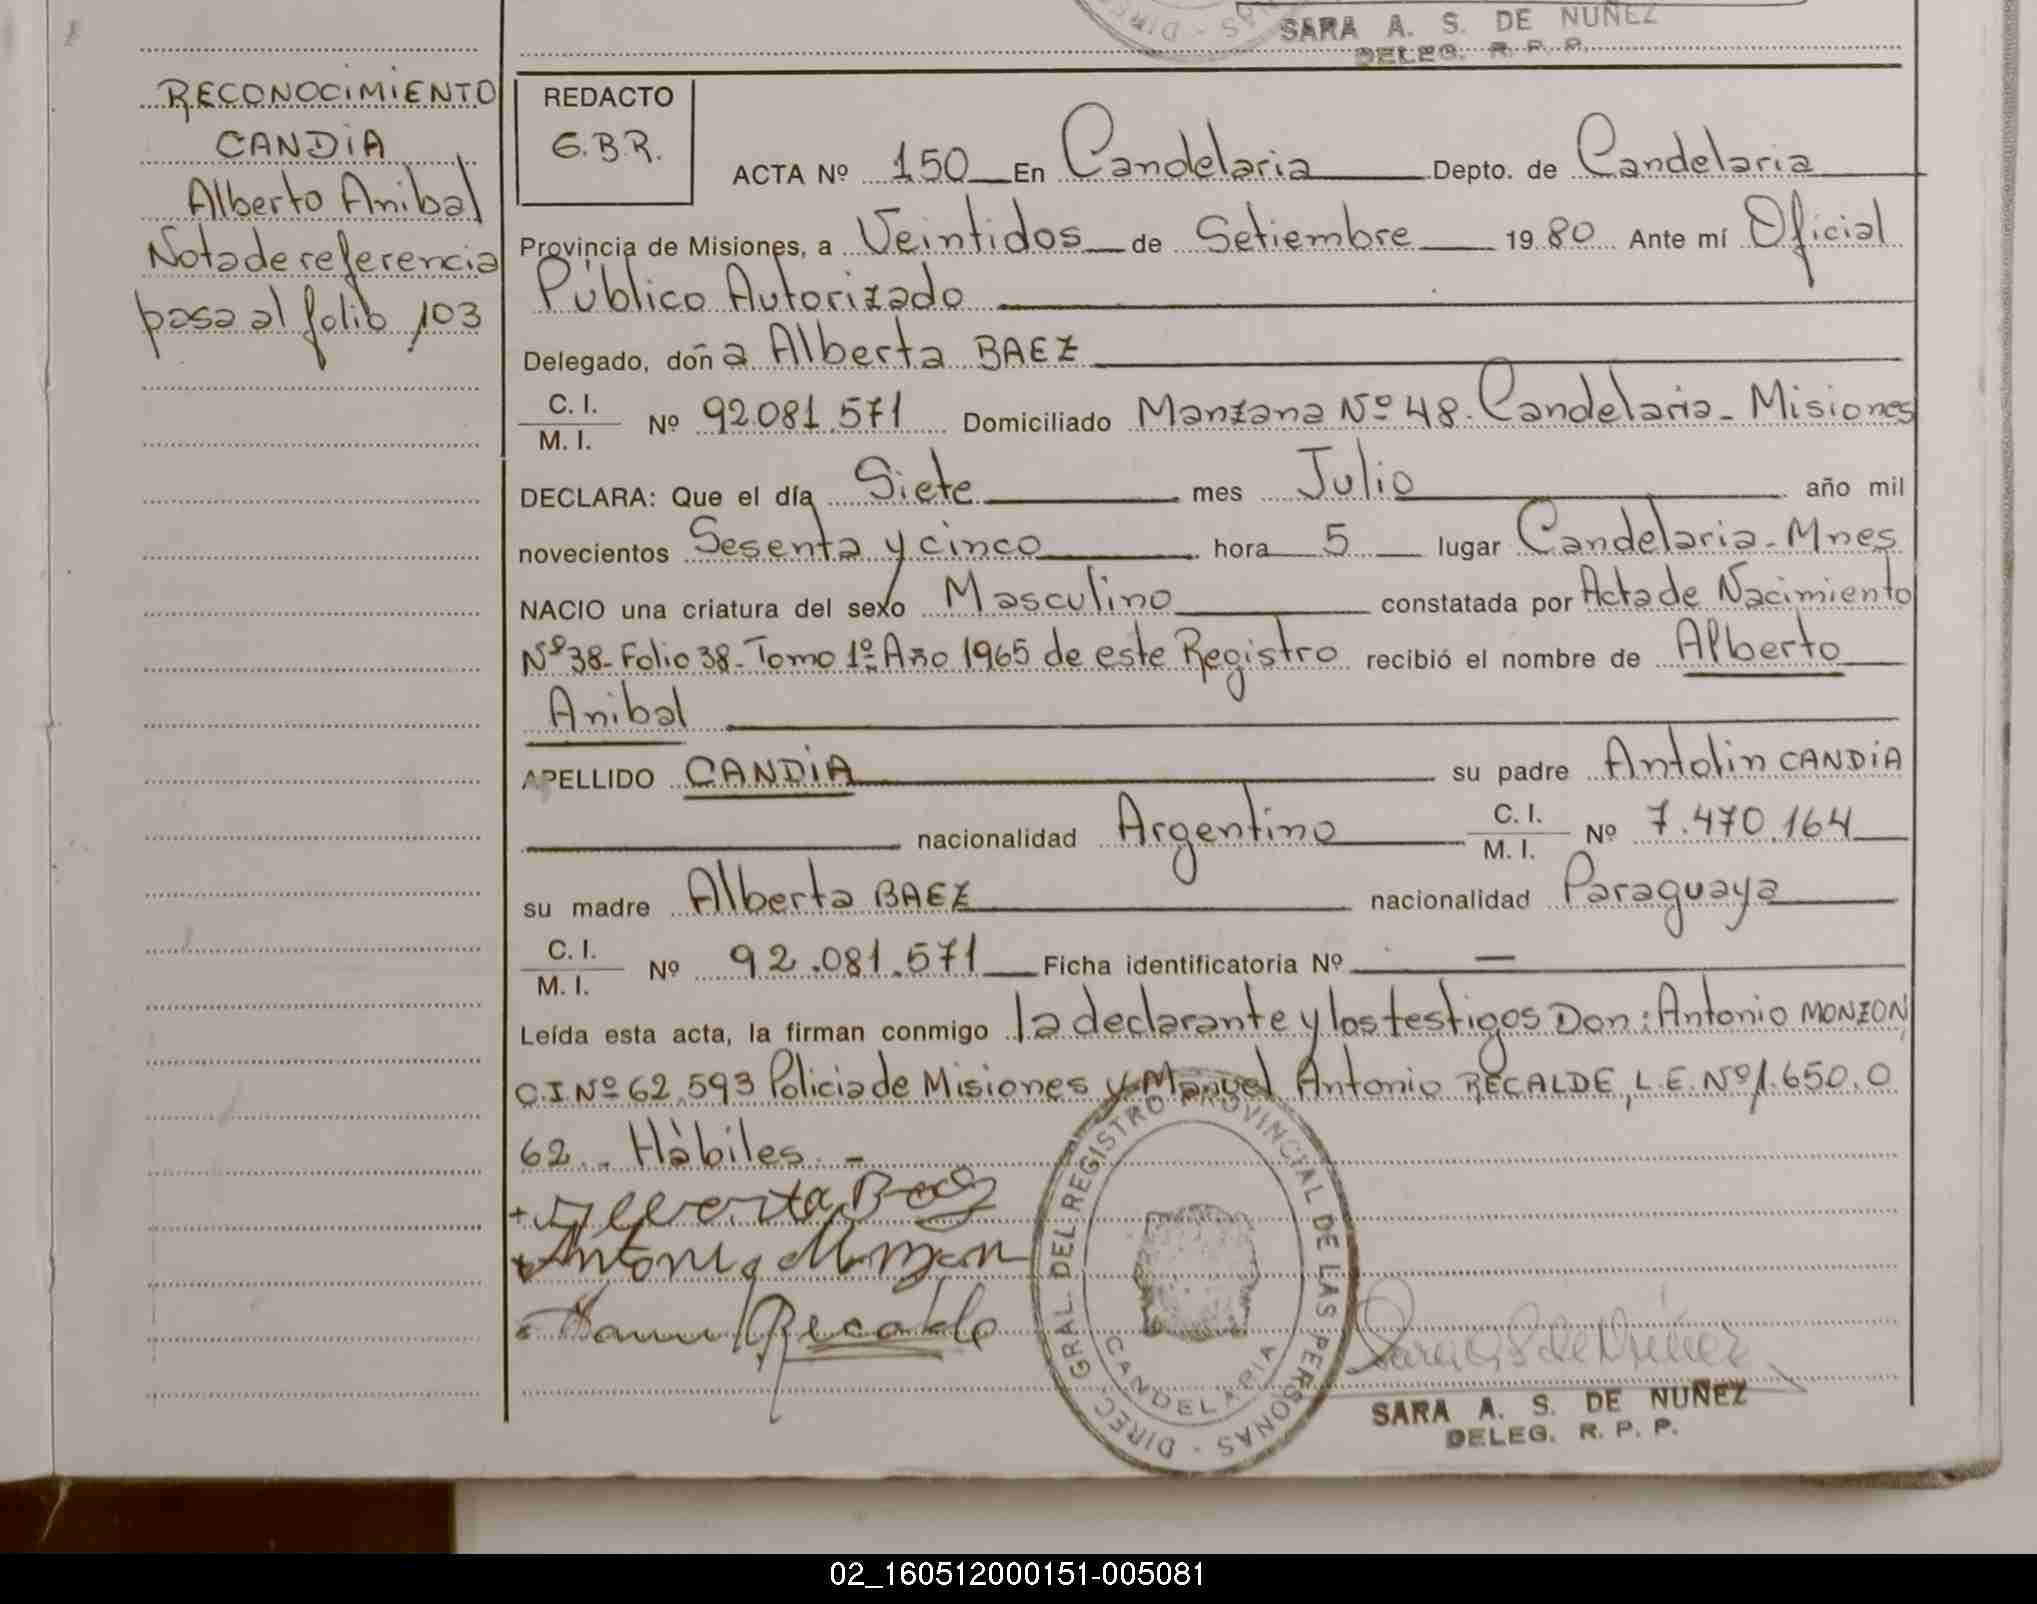 SARA A. S. DE NUÑEZ
DELEG. R. P. P.
RECONOCIMIENTO
CANDIA
Alberto Anibal
Nota de referencia
pasa al folio 103
REDACTO
G.B.R.
ACTA Nº 150 En Candelaria Depto. de Candelaria
Provincia de Misiones, a Veintidos de Setiembre 19 80 Ante mí Oficial
Público Autorizado
Delegado, doña Alberta BAEZ
C. I.
M. I. Nº 92.081.571 Domiciliado Manzana Nº 48. Candelaria - Misiones
DECLARA: Que el día Siete mes Julio año mil
novecientos Sesenta y cinco hora 5 lugar Candelaria - Mnes
NACIO una criatura del sexo Masculino constatada por Acta de Nacimiento
Nº 38 - Folio 38 - Tomo 1º Año 1965 de este Registro recibió el nombre de Alberto
Anibal
APELLIDO CANDIA su padre Antolin CANDIA
nacionalidad Argentino C. I.
M. I. Nº 7.470.164
su madre Alberta BAEZ nacionalidad Paraguaya
C. I.
M. I. Nº 92.081.571 Ficha identificatoria Nº —
Leída esta acta, la firman conmigo la declarante y los testigos Don: Antonio MONZON,
C.I. Nº 62.593 Policia de Misiones y Manuel Antonio RECALDE, L.E. Nº 1.650.0
62.. Hàbiles. -
Alberta Baez
Antonio Monzon
Manuel Recalde
DIREC. GRAL. DEL REGISTRO PROVINCIAL DE LAS PERSONAS
CANDELARIA
Sara A S de Nuñez
SARA A. S. DE NUÑEZ
DELEG. R. P. P.
02_160512000151-005081